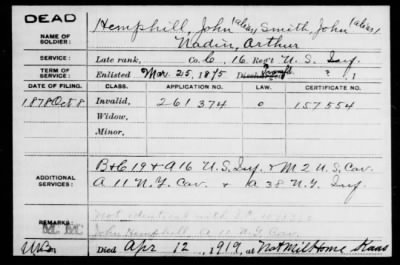 DEAD
Hemphill, John (alias) Smith, John (alias)
NAME OF SOLDIER: Nadin, Arthur
SERVICE: Late rank, Co. C, 16 Reg't U. S. Inf.
TERM OF SERVICE: Enlisted Mar. 25, 1875 Disch ?, 1
DATE OF FILING. CLASS. APPLICATION NO. LAW. CERTIFICATE NO.
1878 Oct 8 Invalid, 261 374 O 157554
Widow,
Minor,
ADDITIONAL SERVICES: B & C 19 & A 16 U. S. Inf. & M 2 U. S. Cav.
A 11 N. Y. Cav. & A 38 N. Y. Inf.
REMARKS: Not identical with
John Hemphill A 11 N.Y. Cav.
Died Apr 12, 1919, at Nat Mil Home Kans